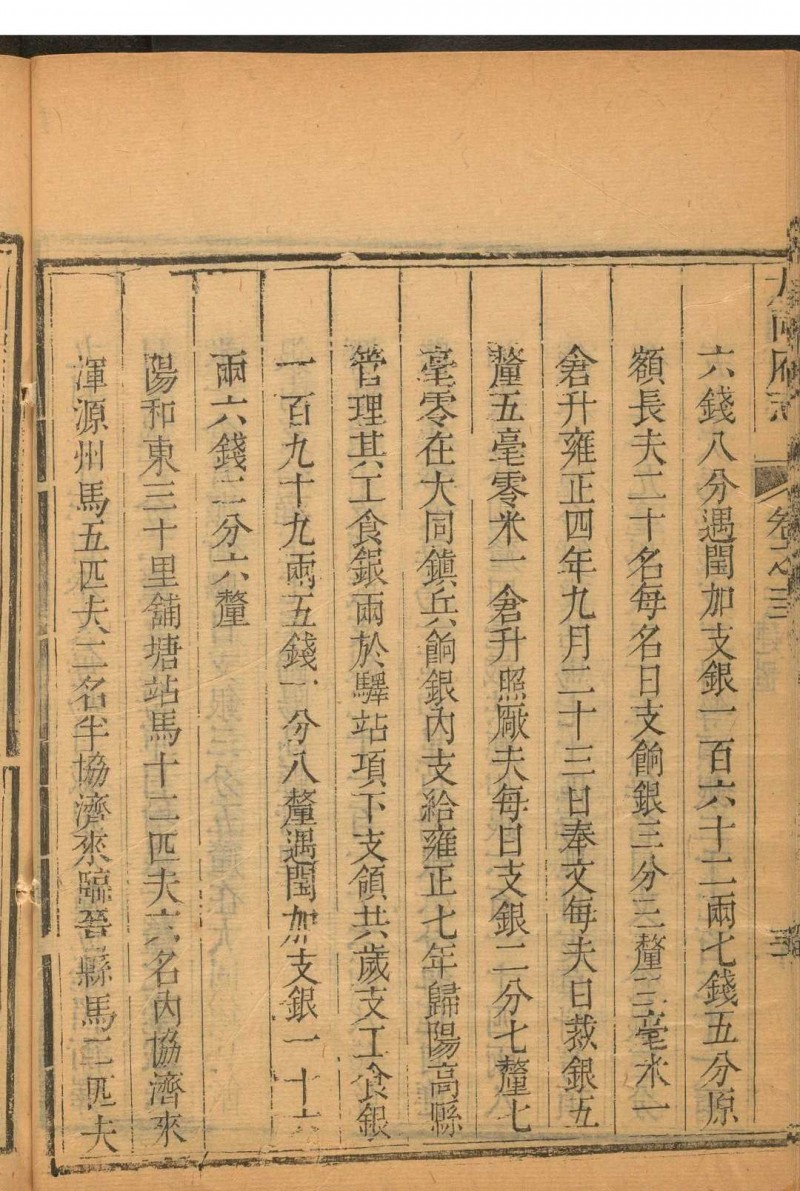 大同府志 卷之三
六錢八分遇閏加支銀一百六十二兩七錢五分原
額長夫二十名每名日支餉銀三分三釐三毫米一
倉升雍正四年九月二十三日奉文每夫日裁銀五
釐五毫零米一倉升照厰夫每日支銀二分七釐七
毫零在大同鎮兵餉銀內支給雍正七年歸陽高縣
管理其工食銀兩於驛站項下支領共歲支工食銀
一百九十九兩五錢一分八釐遇閏加支銀一十六
兩六錢二分六釐
陽和東三十里舖塘站馬十二匹夫六名內協濟來
渾源州馬五匹夫二名半協濟來臨晉縣馬二匹夫